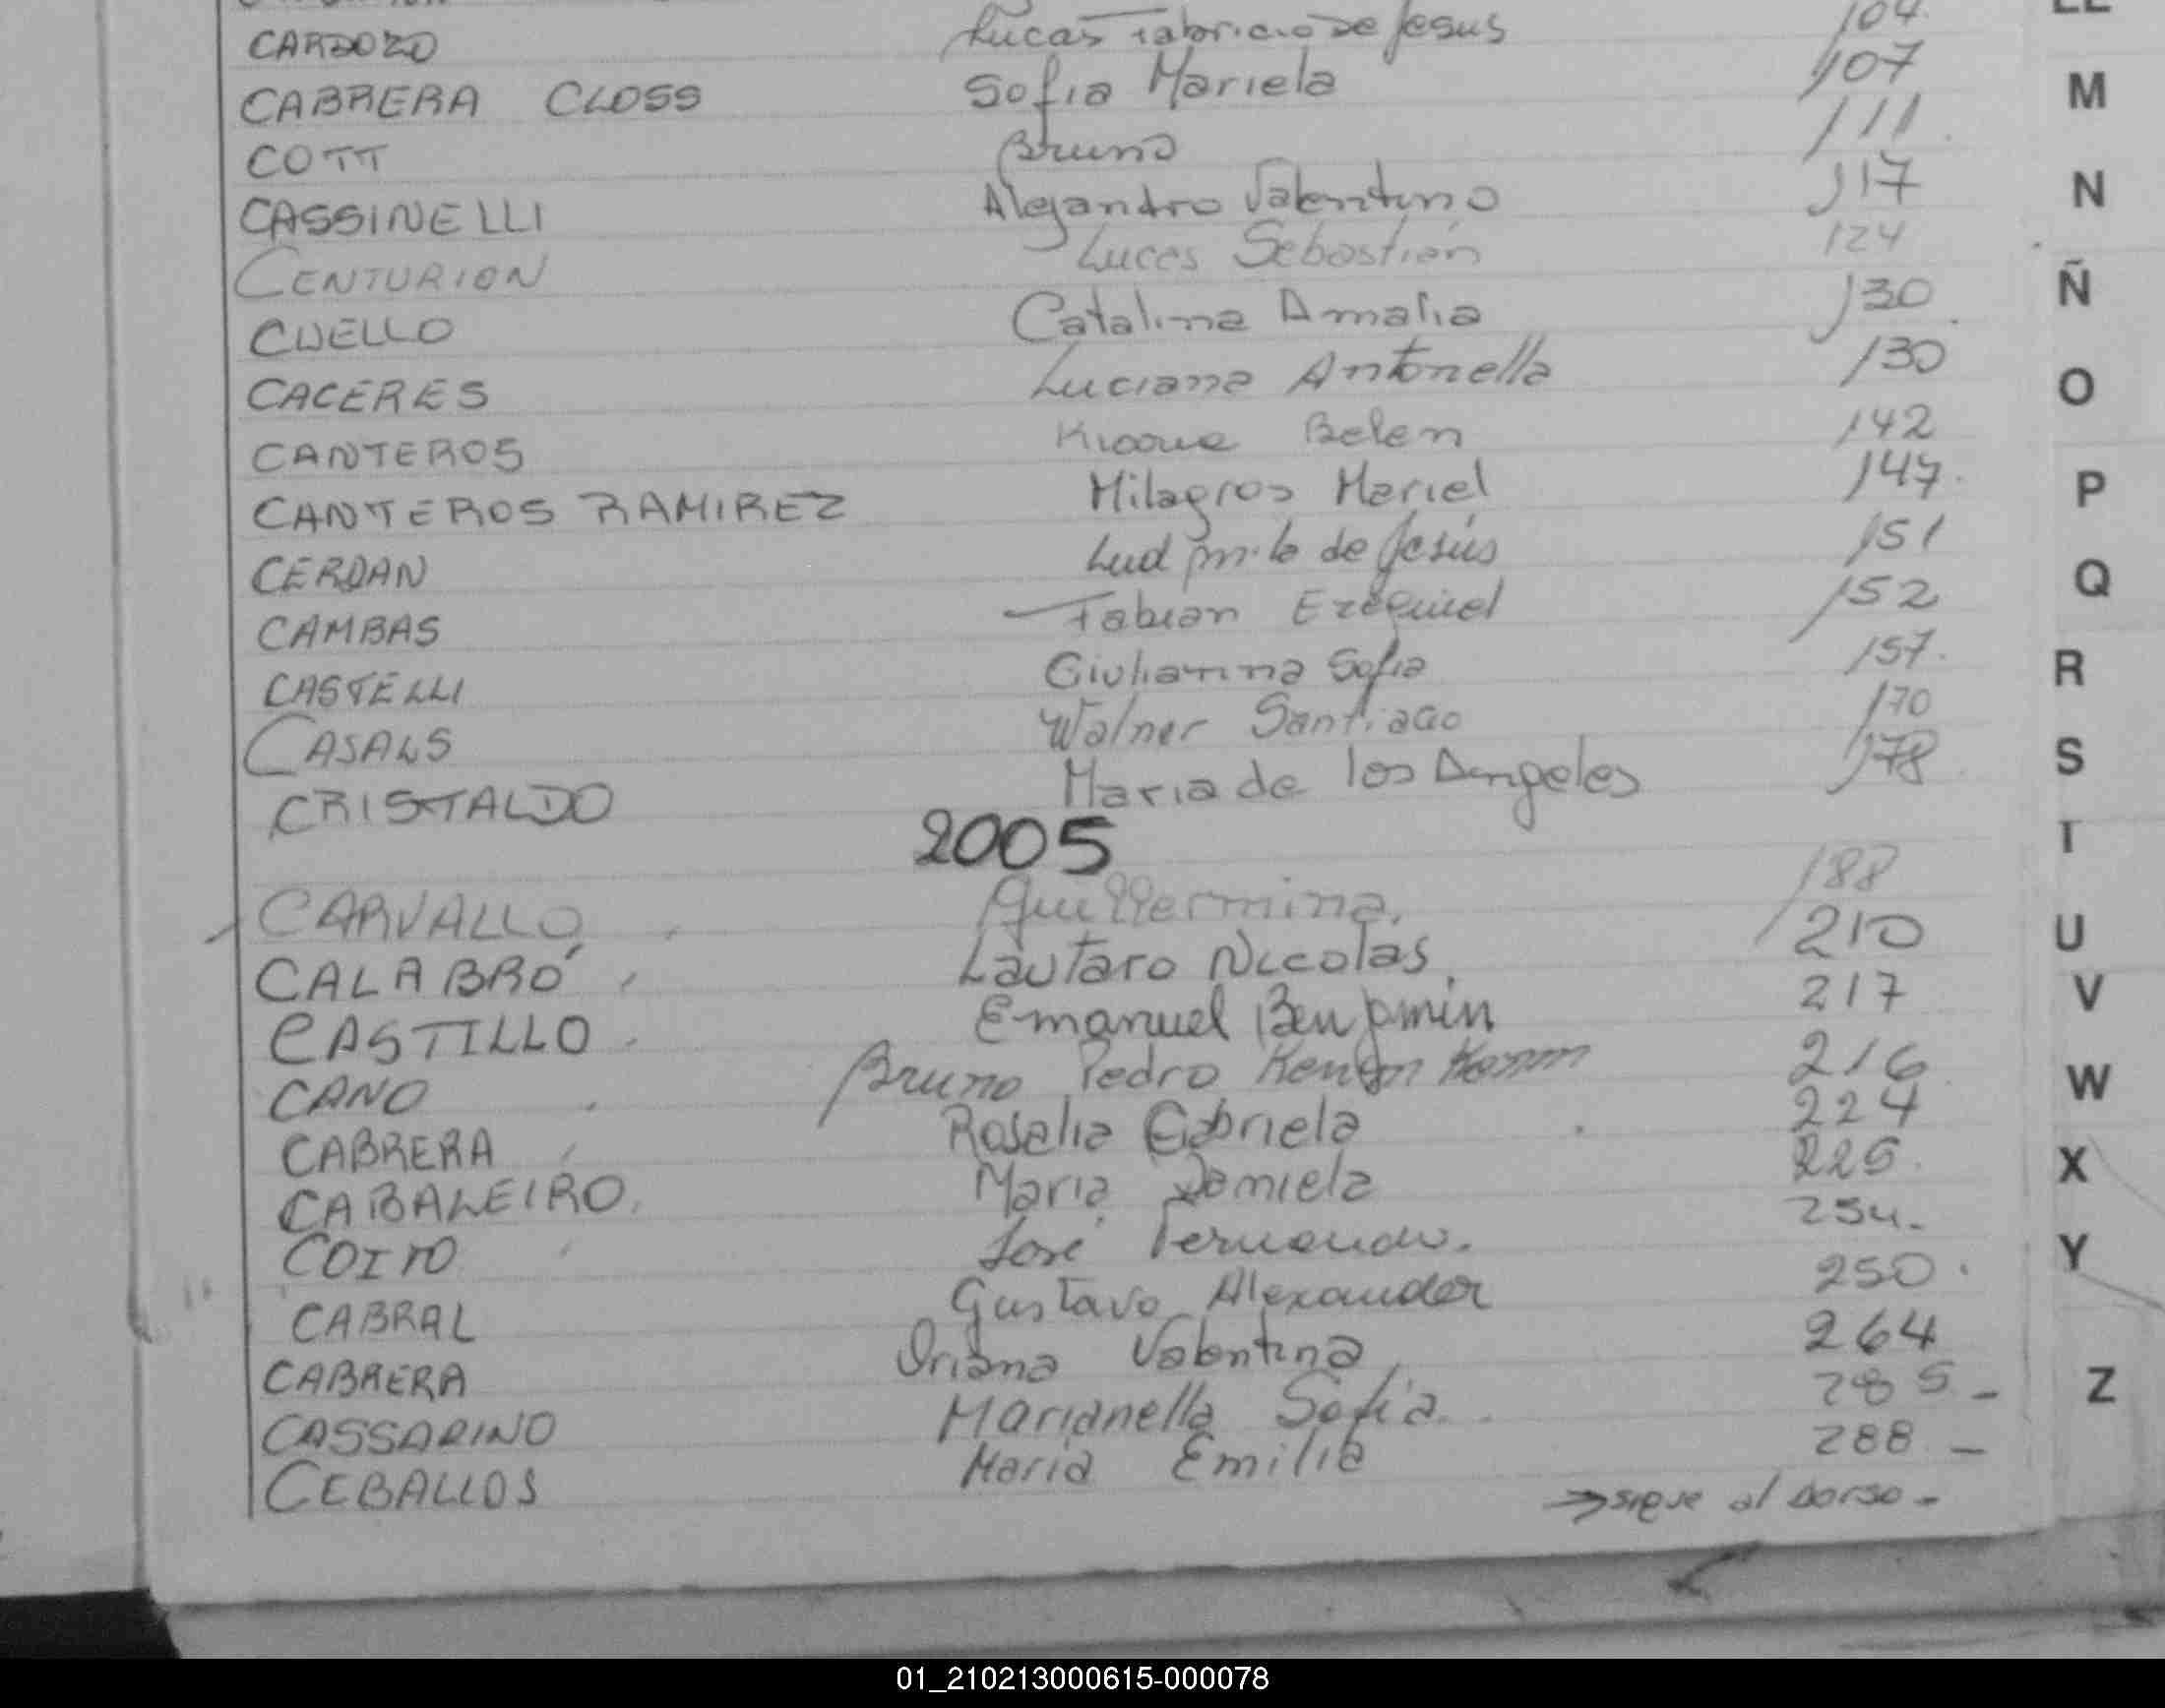 CARDOZO Lucas Fabricio De Jesus 104
CABRERA CLOSS Sofia Mariela 107
COTT Bruno 111
CASSINELLI Alejandro Valentino 117
CENTURION Lucas Sebastián 124
CUELLO Catalina Amalia 130
CACERES Luciana Antonella 130
CANTEROS Belen 142
CANTEROS RAMIREZ Milagros Mariel 147.
CERDAN Ludmila de Jesús 151
CAMBAS Fabian Ezequiel 152
CASTELLI Giulianna Sofia 157.
CASALS Walner Santiago 170
CRISTALDO Maria de los Angeles 178
2005
CARVALLO Guillermina. 188
CALABRÓ Lautaro Nicolás. 210
CASTILLO Emanuel Benjamín 217
CANO Bruno Pedro 216
CABRERA Rosalia Gabriela 224
CABALEIRO. Maria Daniela 225.
COITO José Fernando. 234.
CABRAL Gustavo Alexander 250.
CABRERA Oriana Valentina 264
CASSARINO Marianella Sofia. 285 -
CEBALLOS Maria Emilia 288 -
→ sigue al dorso -
LL
M
N
Ñ
O
P
Q
R
S
T
U
V
W
X
Y
Z
01_210213000615-000078